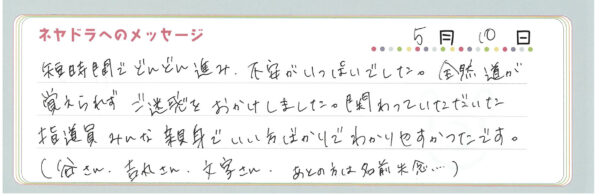 ネヤドラへのメッセージ
5月10日
短時間でどんどん進み、不安がいっぱいでした。全然道が
覚えられず ご迷惑を おかけしました。関わっていただいた
指導員 みんな 親身で いい方ばかりでわかりやすかったです。
(谷さん、吉永さん、文字さん、あとの方は名前失念…)